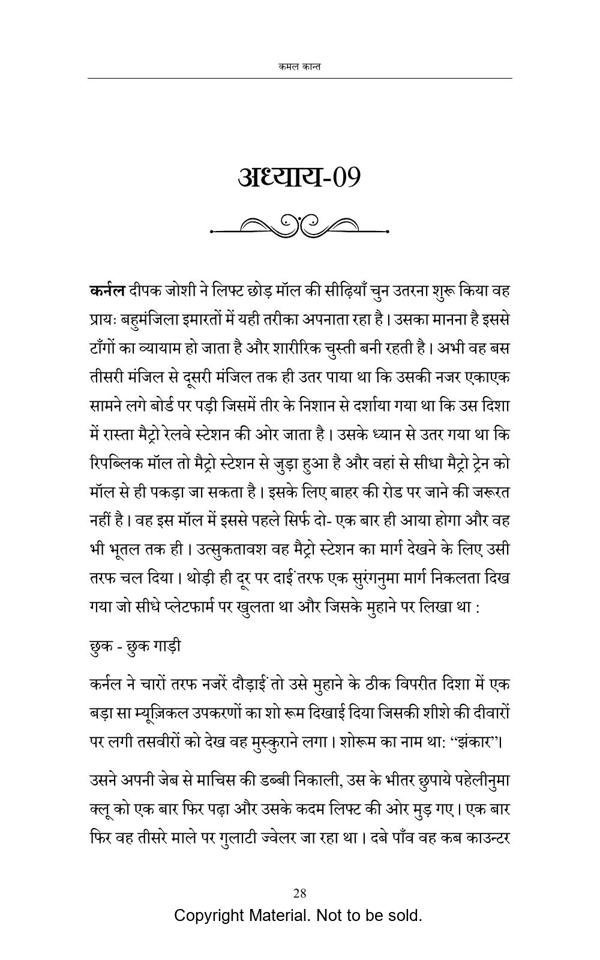 कमल कान्त
अध्याय-09
कर्नल दीपक जोशी ने लिफ्ट छोड़ मॉल की सीढ़ियाँ चुन उतरना शुरू किया वह
प्रायः बहुमंजिला इमारतों में यही तरीका अपनाता रहा है। उसका मानना है इससे
टाँगों का व्यायाम हो जाता है और शारीरिक चुस्ती बनी रहती है। अभी वह बस
तीसरी मंजिल से दूसरी मंजिल तक ही उतर पाया था कि उसकी नजर एकाएक
सामने लगे बोर्ड पर पड़ी जिसमें तीर के निशान से दर्शाया गया था कि उस दिशा
में रास्ता मैट्रो रेलवे स्टेशन की ओर जाता है। उसके ध्यान से उतर गया था कि
रिपब्लिक मॉल तो मैट्रो स्टेशन से जुड़ा हुआ है और वहां से सीधा मैट्रो ट्रेन को
मॉल से ही पकड़ा जा सकता है। इसके लिए बाहर की रोड पर जाने की जरूरत
नहीं है। वह इस मॉल में इससे पहले सिर्फ दो- एक बार ही आया होगा और वह
भी भूतल तक ही। उत्सुकतावश वह मैट्रो स्टेशन का मार्ग देखने के लिए उसी
तरफ चल दिया। थोड़ी ही दूर पर दाईं तरफ एक सुरंगनुमा मार्ग निकलता दिख
गया जो सीधे प्लेटफार्म पर खुलता था और जिसके मुहाने पर लिखा था :
छुक - छुक गाड़ी
कर्नल ने चारों तरफ नजरें दौड़ाईं तो उसे मुहाने के ठीक विपरीत दिशा में एक
बड़ा सा म्यूज़िकल उपकरणों का शो रूम दिखाई दिया जिसकी शीशे की दीवारों
पर लगी तसवीरों को देख वह मुस्कुराने लगा। शोरूम का नाम था: “झंकार”।
उसने अपनी जेब से माचिस की डब्बी निकाली, उस के भीतर छुपाये पहेलीनुमा
क्लू को एक बार फिर पढ़ा और उसके कदम लिफ्ट की ओर मुड़ गए। एक बार
फिर वह तीसरे माले पर गुलाटी ज्वेलर जा रहा था। दबे पाँव वह कब काउन्टर
28
Copyright Material. Not to be sold.